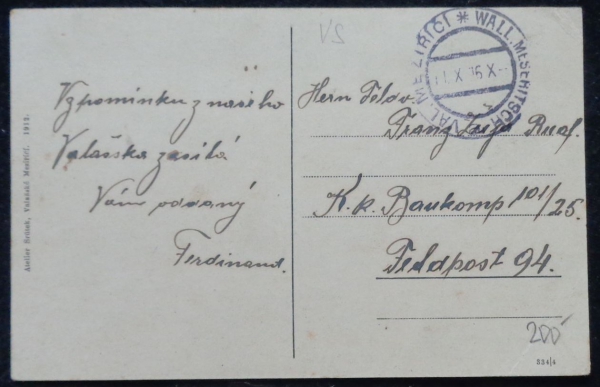 Vzpomínku z našeho
Valašska zasílá
Vám oddaný
Ferdinand.
Atelier Brázek, Valašské Meziříčí. 1913.
VS
VAL. MEZIŘÍČÍ * WALL. MESERITSCH
X 16 X
Herrn
Franz
K.k. Baukomp 101/25.
Feldpost 94.
200
334/4